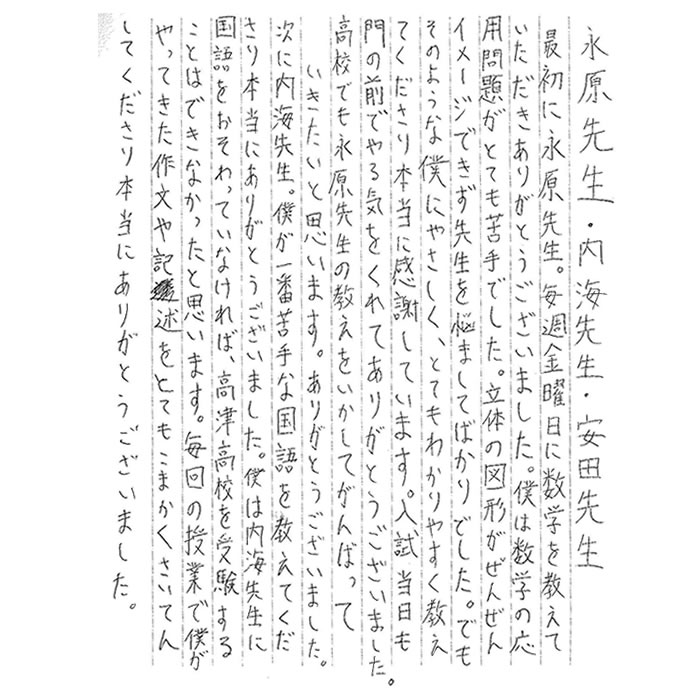 永原先生・内海先生・安田先生
最初に永原先生。毎週金曜日に数学を教えて
いただきありがとうございました。僕は数学の応
用問題がとても苦手でした。立体の図形がぜんぜん
イメージできず先生を悩ましてばかりでした。でも
そのような僕にやさしく、とてもわかりやすく教え
てくださり本当に感謝しています。入試当日も
門の前でやる気をくれてありがとうございました。
高校でも永原先生の教えをいかしてがんばって
いきたいと思います。ありがとうございました。
次に内海先生。僕が一番苦手な国語を教えてくだ
さり本当にありがとうございました。僕は内海先生に
国語をおそわっていなければ、高津高校を受験する
ことはできなかったと思います。毎回の授業で僕が
やってきた作文や記述をとてもこまかくさいてん
してくださり本当にありがとうございました。